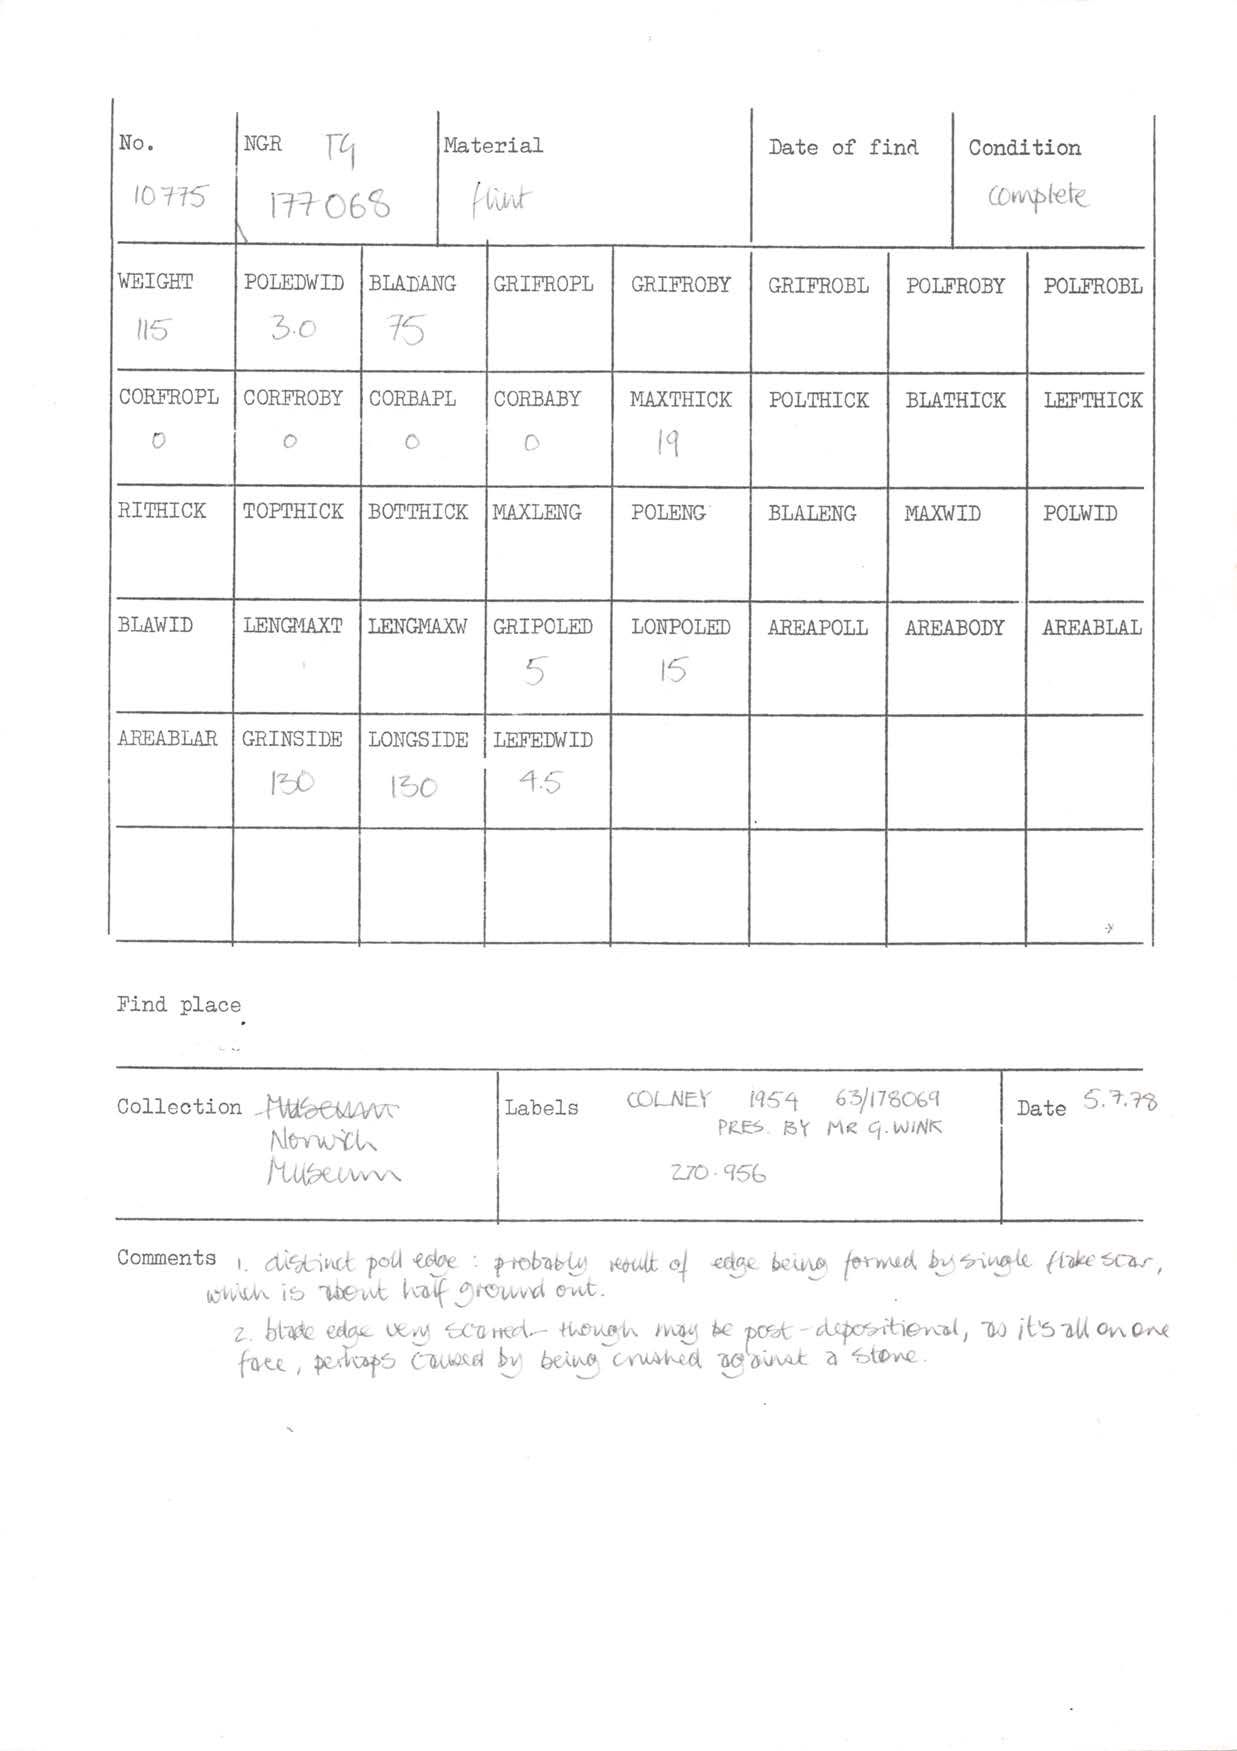 No. NGR TG Material Date of find Condition
10775 177068 flint complete
WEIGHT POLEDWID BLADANG GRIFROPL GRIFROBY GRIFROBL POLFROBY POLFROBL
115 3.0 75
CORFROPL CORFROBY CORBAPL CORBABY MAXTHICK POLTHICK BLATHICK LEFTHICK
0 0 0 0 19
RITHICK TOPTHICK BOTTHICK MAXLENG POLENG BLALENG MAXWID POLWID
BLAWID LENGMAXT LENGMAXW GRIPOLED LONPOLED AREAPOLL AREABODY AREABLAL
5 15
AREABLAR GRINSIDE LONGSIDE LEFEDWID
130 130 4.5
Find place
Collection Museum Labels COLNEY 1954 63/178069 Date 5.7.78
Norwich PRES. BY MR G. WINK
Museum 270.956
Comments 1. distinct poll edge : probably result of edge being formed by single flake scar,
which is about half ground out.
2. blade edge very scarred - though may be post-depositional, as it's all on one
face, perhaps caused by being crushed against a stone.